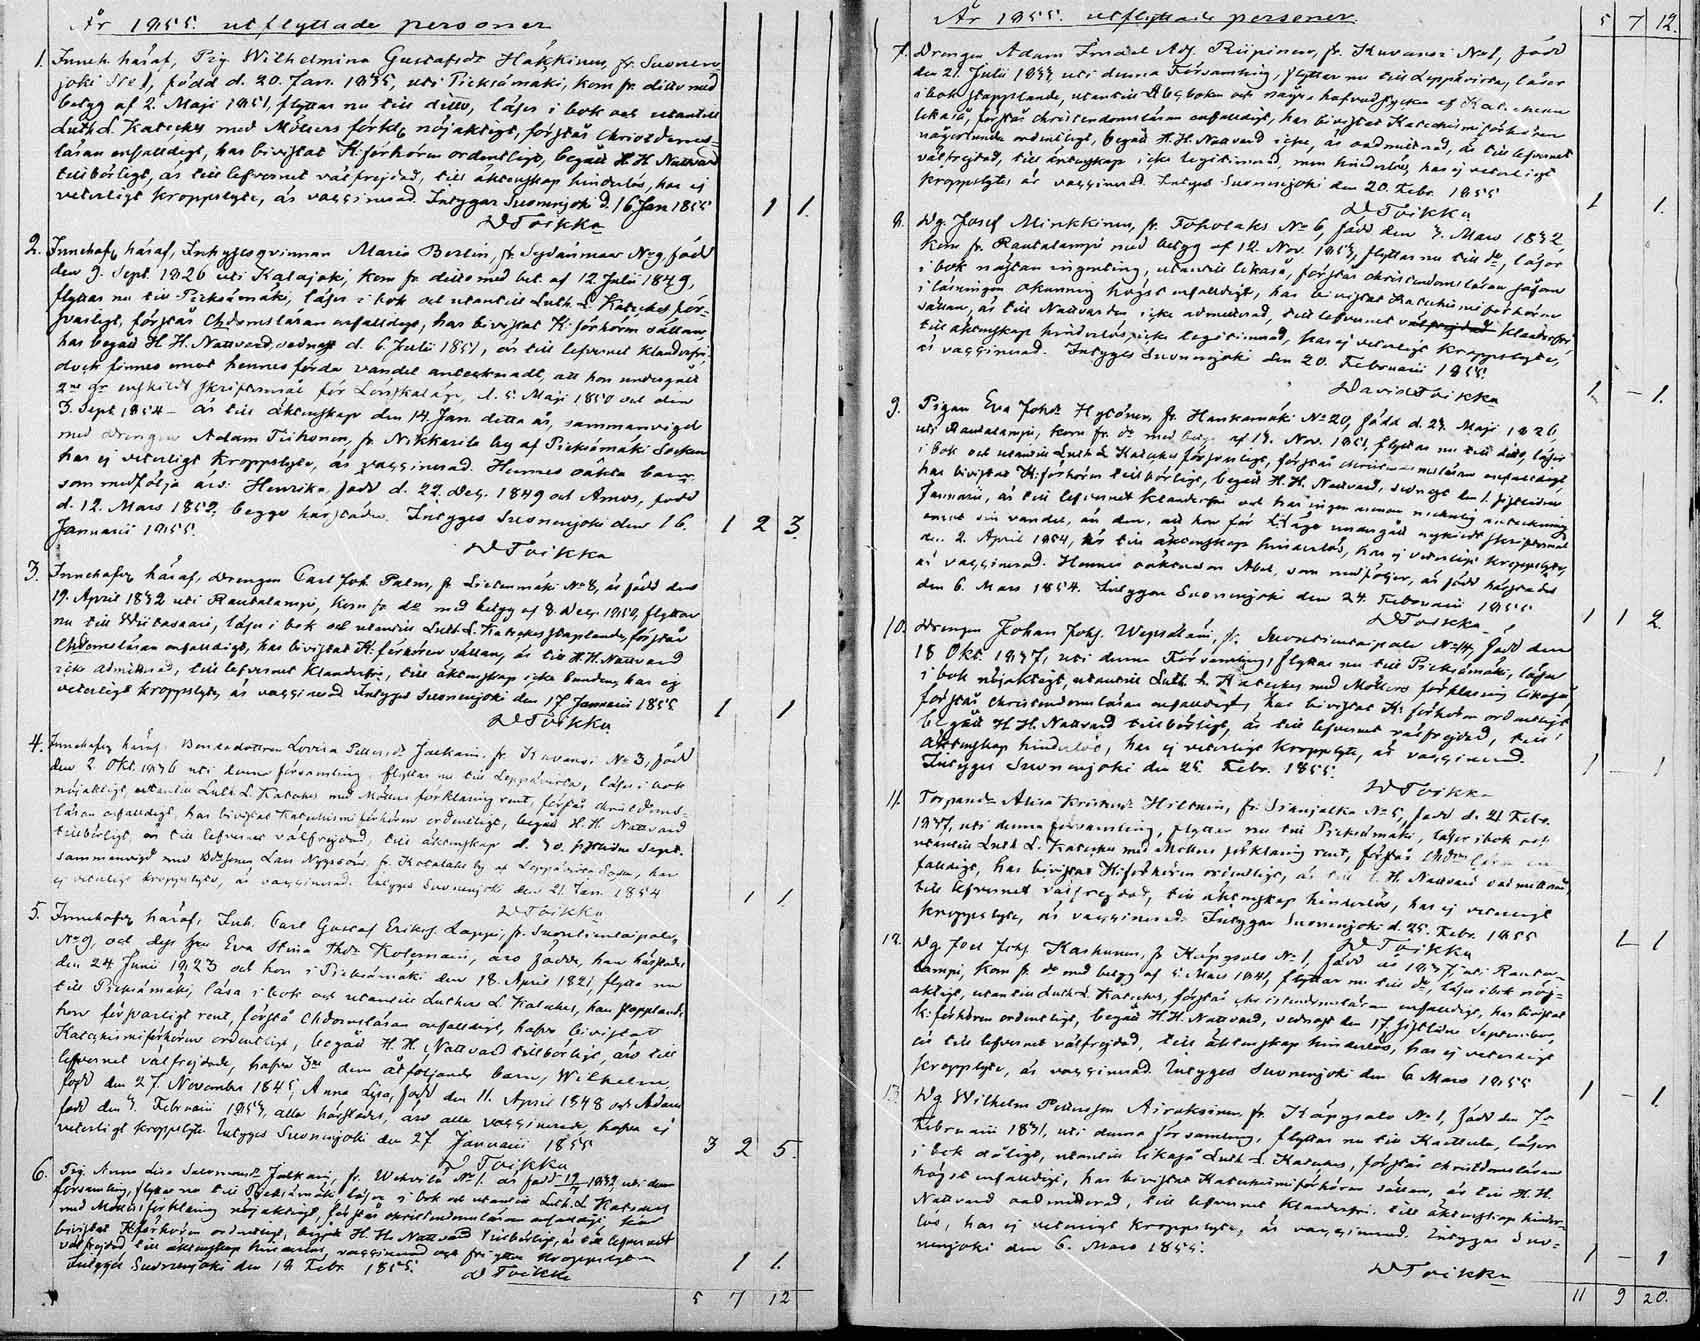 År 1855. utflyttade personer
1. Inneh. häraf, Pig. Wilhelmina Gustafsdr Häkkinen, fr. Suonen-
joki No 1, född d. 20. Jan. 1835, uti Pieksämäki, kom fr. dito med
betyg af 2. Maji 1851, flyttar nu till ditto, läser i bok och utantill
Luth. L. Kateches med Möllers förkl. nöjaktigt, förstår Christdoms-
läran enfaldigt, har bivistat K. förhören ordentligt, begått H. H. Nattvard
tillbörligt, är till lefvernet välfrejdad, till äktenskap hinderlös, har ej
veterligt kroppslyte, är vaccinerad. Intygar Suonenjoki d. 16 Jan. 1855
1 1.
D Toikka
2. Innehafv. häraf, Inhysesqvinnan Maria Berlin, fr. No 9, född
den 9. Sept. 1826 uti Kalajoki, kom fr. ditto med bet. af 12 Julii 1849,
flyttar nu till Pieksämäki, läser i bok och utantill Luth. L. Kateches för-
svarligt, förstår Chdomsläran enfaldigt, har bivistat K. förhören sällan,
har begått H. H. Nattvard, sednast d. 6 Julii 1851, är till lefvernet klanderfri,
dock finnes emot hennes förda vandel antecknadt, att hon undergått
2ne gr enskildt skriftermål för Lönskaläge, d. 5. Maji 1850 och den
3. Sept 1854 – är till äktenskap den 14 Jan. detta år, sammanvigd
med drengen Adam Tiihonen, fr. Nikkarila by af Pieksämäki Socken
har ej veterligt kroppslyte, är vaccinerad. Hennes oäkta barn
som medfölja äro: Henrika, född d. 22. Dec. 1849 och Amos, född
d. 12. Mars 1852, begge härstädes. Intygas Suonenjoki den 16.
Januarii 1855.
1 2 3.
D Toikka
3. Innehafv. häraf, drengen Carl Joh. Palm, fr. Lietenmäki No 8, är född den
19. April 1832 uti Rautalampi, kom fr. do med betyg af 8. Dec. 1850, flyttar
nu till Wiitasaari, läser i bok och utantill Luth. L. Kateches stapplande, förstår
Chdomsläran enfaldigt, har bivistat K. förhören sällan, är till H. H. Nattvard
icke admitterad, till lefvernet klanderfri, till äktenskap icke bunden, har ej
veterligt kroppslyte, är vaccinerad Intygas Suonenjoki den 17 Januarii 1855
1 1
D Toikka
4. Innehafv. häraf. Bondedottren Lovisa Pettersdr Jalkanen, fr. Kuvansi No 3, född
den 2. Okt. 1836 uti denna församling, flyttar nu till Leppävirta, läser i bok
nöjaktigt, utantill Luth. L. Kateches med Möllers förklaring rent, förstår christdoms-
läran enfaldigt, har bivistat Katechismiförhören ordentligt, begått H. H. Nattvard
tillbörligt, är till lefvernet välfrejdad, till äktenskap d. 30. sistlidne Sept.
sammanvigd med Bdesonen Lars Nygrén, fr. Kotalahti by af Leppävirta Socken, har
ej veterligt kroppslyte, är vaccinerad. Intygas Suonenjoki den 21. Jan. 1854
1 1.
D Toikka
5. Innehafv. häraf, Inh. Carl Gustaf Eriks. Lappi, fr. Suontientaipale,
No 9, och dess hu Eva Stina Thdr Kolemain, äro födde, han härstädes
den 24 Junii 1823 och hon i Pieksämäki den 18. April 1821, flytta nu
till Pieksämäki, läsa i bok och utantill Luthers L. Kateches, han stapplande
hon försvarligt rent, förstå Chdomsläran enfaldigt, hafva bivistat
Katechismiförhören ordentligt, begått H. H. Nattvard tillbörligt, äro till
lefvernet välfrejdade, hafva 3ne dem åtföljande barn, Wilhelm,
född den 27. November 1845, Anna Lisa, född den 11. April 1848 och Adam
född den 3. Februarii 1853, alla härstädes, äro alla vaccinerade, hafva ej
veterligt kroppslyte. Intygas Suonenjoki den 27 Januarii 1855
3 2 5.
D Toikka
6. Pig. Anna Lisa Salomonsdr Jalkain, fr. Wehvilä No 1. är född 1832 uti denna
församling, flyttar nu till Pieksämäki, läser i bok och utantill Luth. L. Kateches
med Möllers förklaring nöjaktigt, förstår christendomsläran enfaldigt, har
bivistat K. förhören ordentligt, begått H. H. Nattvard tillbörligt, är till lefvernet
välfrejdad, till äktenskap hinderlös, vaccinerad och fri ifrån kroppslyten
Intygas Suonenjoki den 18 Febr. 1855.
1 1.
D Toikka
5 7 12
År 1855. utflyttade personer.
5 7 12.
7. Drengen Adam Enokel Ads. Riipinen, fr. Kuvansi No 1, född
den 21. Julii 1833 uti denna Församling, flyttar nu till Leppävirta, läser
i bok stapplande, utantill Abcboken och några hufvudstycken af Katechesen
likaså, förstår christendomsläran enfaldigt, har bivistat Katechismiförhören
någorlunda ordentligt, begått H. H. Nattvard icke, är oadmitterad, är till lefvernet
välfrejdad, till äktenskap icke legitimerad, men hinderlös, har ej veterligt
kroppslyte, är vaccinerad. Intygas Suonenjoki den 20. Febr. 1855
1 1.
D Toikka
8. Dg. Josef Minkkinen, fr. Toholaks No 6, född den 3. Mars 1832,
kom fr. Rautalampi med betyg af 12. Nov. 1853, flyttar nu till do, läser
i bok nästan ingenting, utantill likaså, förstår christendomsläran såsom
i läsningen okunnig högst enfaldigt, har bivistat Katechismiförhören
sällan, är till Nattvarden icke admitterad, till lefvernet välfrejdad klanderfri
till äktenskap hinderlös, icke legitimerad, har ej veterligt kroppslyte,
är vaccinerad. Intygas Suonenjoki den 20. Februarii 1855.
1 – 1.
David Toikka
9. Pigan Eva Johsdr Hytönen, fr. Hankamäki No 20, född d. 23. Maji 1826,
uti Rautalampi, kom fr. do med betyg af 13. Nov. 1851, flyttar nu till ditto, läser
i bok och utantill Luth. L. Kateches försvarligt, förstår christendomsläran enfaldigt,
har bivistat K. förhören tillbörligt, begått H. H. Nattvard, sednast den 1. sistlidne
Januarii, är till lefvernet klanderfri och har ingen annan nesnelig anteckning
emot sin vandel, än den, att hon för L. läge undergått enskildt skriftermål
den 2. April 1854, är till äktenskap hinderlös, har ej veterligt kroppslyte,
är vaccinerad. Hennes oäkta son Abel, som medföljer, är född härstädes
den 6. Mars 1854. Intygar Suonenjoki den 24. Februarii 1855
1 1 2.
D Toikka
10. Drengen Johan Johs. Wepsäläin, fr. Suontientaipale No 14, född den
18 Okt. 1837, uti denna Församling, flyttar nu till Pieksämäki, läser
i bok nöjaktigt, utantill Luth. L. Kateches med Möllers förklaring likaså,
förstår christendomsläran enfaldigt, har bivistat K. förhören ordentligt
begått H. H. Nattvard tillbörligt, är till lefvernet välfrejdad, till
äktenskap hinderlös, har ej veterligt kroppslyte, är vaccinerad.
Intygas Suonenjoki den 25. Febr. 1855.
1 – 1
D Toikka
11. Torparedr Alisa Kristersdr Hiltuin, fr. Siansjalka No 5, född d. 21 Febr.
1837, uti denna församling, flyttar nu till Pieksämäki, läser i bok och
utantill Luth L. Kateches med Möllers förklaring rent, förstår Chdomsläran en-
faldigt, har bivistat K. förhören ordentligt, är till H. H. Nattvard oadmitterad,
till lefvernet välfrejdad, till äktenskap hinderlös, har ej veterligt
kroppslyte, är vaccinerad. Intygar Suonenjoki d. 25. Febr. 1855
1 1
D Toikka
12. Dg Joel Johs. Kashunen, fr. Käpysalo No 1, född år 1837, uti Rauta-
lampi, kom fr. do med betyg af 5. Mars 1841, flyttar nu till do, läser i bok nöj-
aktigt, utantill Luth. L. Kateches, förstår christendomsläran enfaldigt, har bivistat
K. förhören ordentligt, begått H. H. Nattvard, sednast den 17. sistlidne September,
är till lefvernet välfrejdad, till äktenskap hinderlös, har ej veterligt
kroppslyte, är vaccinerad. Intygas Suonenjoki den 6 Mars 1855
1 – 1.
13. Dg Wilhelm Petterson Airaksinen, fr. Käpysalo No 1, född den 7de
Februarii 1831, uti denna församling, flyttar nu till Karttula, läser
i bok dåligt, utantill likaså Luth. L. Kateches, förstår christdomsläran
högst enfaldigt, har bivistat Katechismiförhören sällan, är till H. H.
Nattvard oadmitterad, till lefvernet klanderfri, till äktenskap hinder-
lös, har ej veterligt kroppslyte, är vaccinerad. Intygar Suo-
nenjoki den 6. Mars 1855.
1 – 1
D Toikka
11 9 20.